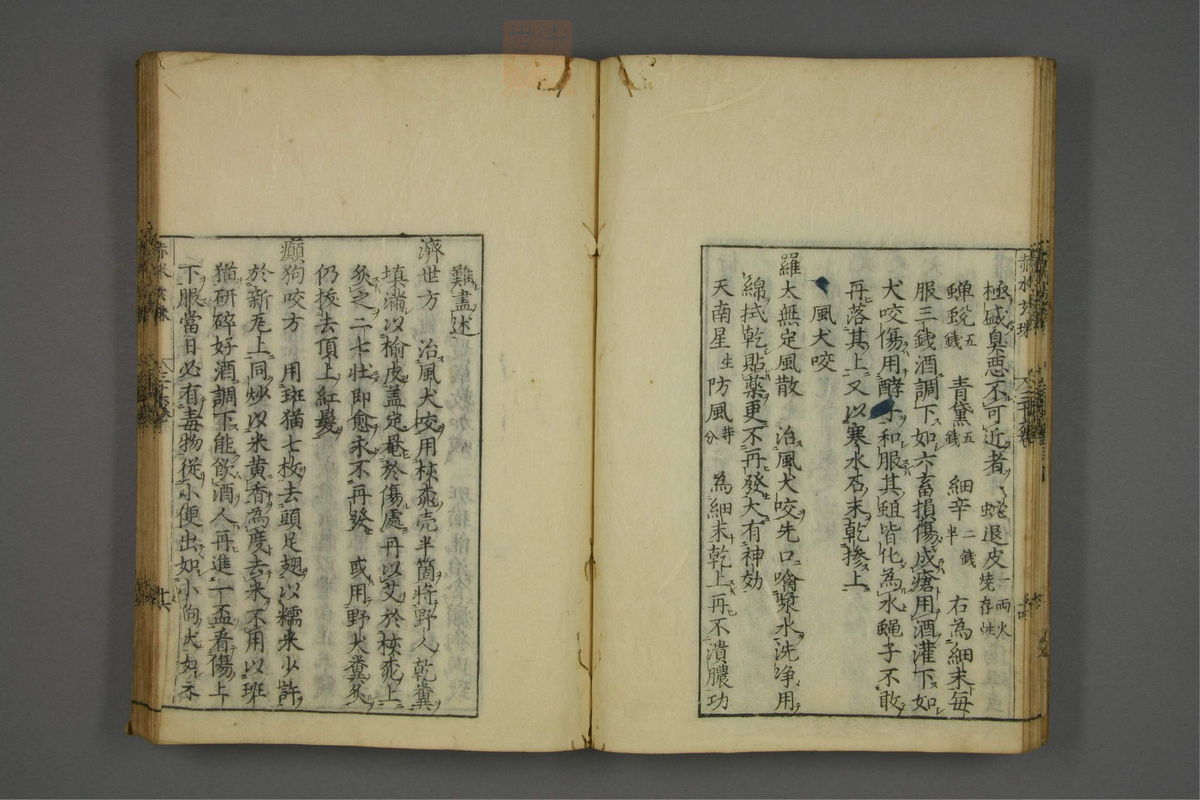 極盛臭悪不可近者 蛇退皮一両火焼存性
蝉蛻五銭 青黛五銭 細辛二銭半 右為細末毎
服三銭酒調下如六畜損傷成瘡用酒灌下如
犬咬傷用酵子和服其蛆皆化為水蠅子不敢
再落其上又以寒水石末乾掺上
風犬咬
羅太無定風散 治風犬咬先口噙漿水洗浄用
綿拭乾貼薬更不再發大有神効
天南星生 防風等分 為細末乾上再不潰膿功
難盡述
濟世方 治風犬咬用核桃壳半箇将野人乾糞
填滿以榆皮蓋定罨於傷處再以艾於核桃上
灸之二七壮即愈永不再發 或用野犬糞灸
仍拔去頂上紅髮
癲狗咬方 用斑猫七枚去頭足翅以糯米少許
於新瓦上同炒以米黄香為度去米不用以斑
猫研碎好酒調下能飲酒人再進一盃看傷上
下服當日必有毒物従小便出如小狗状如未